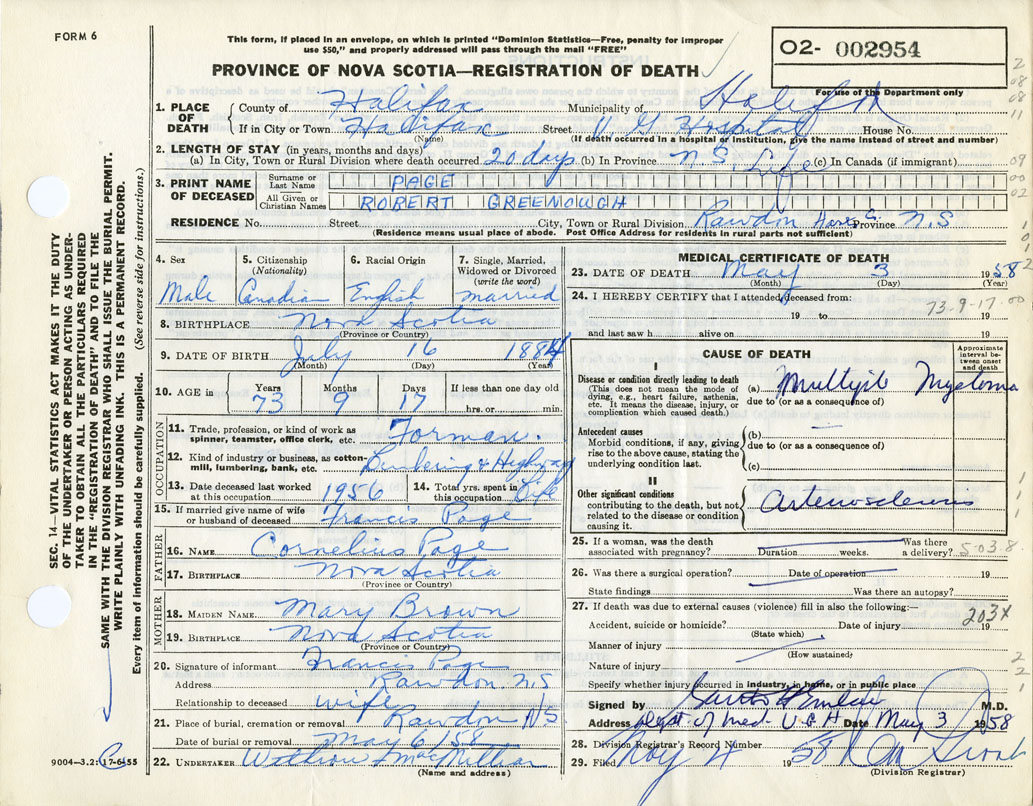 FORM 6
This form, if placed in an envelope, on which is printed "Dominion Statistics—Free, penalty for improper
use $50," and properly addressed will pass through the mail "FREE"
PROVINCE OF NOVA SCOTIA—REGISTRATION OF DEATH
O2- 002954
For use of the Department only
1. PLACE OF DEATH { County of Halifax Municipality of Halifax
If in City or Town Halifax Street V G Hospital House No.
(Name) (If death occurred in a hospital or institution, give the name instead of street and number)
2. LENGTH OF STAY (in years, months and days)
(a) In City, Town or Rural Division where death occurred 20 days (b) In Province N.S. Life (c) In Canada (if immigrant)
3. PRINT NAME OF DECEASED { Surname or Last Name PAGE
All Given or Christian Names ROBERT GREENOUGH
RESIDENCE No. Street City, Town or Rural Division Rawdon Hants Co. Province N.S
(Residence means usual place of abode. Post Office Address for residents in rural parts not sufficient)
4. Sex Male
5. Citizenship (Nationality) Canadian
6. Racial Origin English
7. Single, Married, Widowed or Divorced (write the word) married
8. BIRTHPLACE Nova Scotia
(Province or Country)
9. DATE OF BIRTH July 16 1884
(Month) (Day) (Year)
10. AGE in Years 73 Months 9 Days 17 If less than one day old hrs. or min.
OCCUPATION
11. Trade, profession, or kind of work as spinner, teamster, office clerk, etc. Forman.
12. Kind of industry or business, as cotton-mill, lumbering, bank, etc. Lumbering & Highway
13. Date deceased last worked at this occupation 1956
14. Total yrs. spent in this occupation Life
15. If married give name of wife or husband of deceased Francis Page
FATHER
16. NAME Cornelius Page
17. BIRTHPLACE Nova Scotia
(Province or Country)
MOTHER
18. MAIDEN NAME Mary Brown
19. BIRTHPLACE Nova Scotia
(Province or Country)
20. Signature of informant Francis Page
Address Rawdon N.S
Relationship to deceased wife
21. Place of burial, cremation or removal Rawdon N.S.
Date of burial or removal May 6/58
22. UNDERTAKER
(Name and address)
MEDICAL CERTIFICATE OF DEATH
23. DATE OF DEATH May 3 1958
(Month) (Day) (Year)
24. I HEREBY CERTIFY that I attended deceased from:
73-9-17.00
19 to 19
and last saw h alive on 19
CAUSE OF DEATH
Approximate interval between onset and death
I
Disease or condition directly leading to death
(This does not mean the mode of dying, e.g., heart failure, asthma, etc. It means the disease, injury, or complication which caused death.)
(a) Multiple Myeloma
due to (or as a consequence of)
Antecedent causes
Morbid conditions, if any, giving rise to the above cause, stating the underlying condition last.
(b)
due to (or as a consequence of)
(c)
II
Other significant conditions
contributing to the death, but not related to the disease or condition causing it.
Arteriosclerosis
25. If a woman, was the death associated with pregnancy? Duration weeks. Was there a delivery?
5-03.8
26. Was there a surgical operation? Date of operation 19
State findings Was there an autopsy?
27. If death was due to external causes (violence) fill in also the following:—
203X
Accident, suicide or homicide? Date of injury 19
(State which)
Manner of injury
(How sustained)
Nature of injury
Specify whether injury occurred in industry, in home, or in public place
Signed by M.D.
Address Dept. of Med. V.G.H Date May 3 1958
28. Division Registrar's Record Number
29. Filed 4 1958
(Division Registrar)
9004—3.2: 17-6-55
SEC. 14—VITAL STATISTICS ACT MAKES IT THE DUTY
OF THE UNDERTAKER OR PERSON ACTING AS UNDER-
TAKER TO OBTAIN ALL THE PARTICULARS REQUIRED
IN THE "REGISTRATION OF DEATH" AND TO FILE THE
SAME WITH THE DIVISION REGISTRAR WHO SHALL ISSUE THE BURIAL PERMIT.
WRITE PLAINLY WITH UNFADING INK. THIS IS A PERMANENT RECORD.
Every item of information should be carefully supplied. (See reverse side for instructions.)